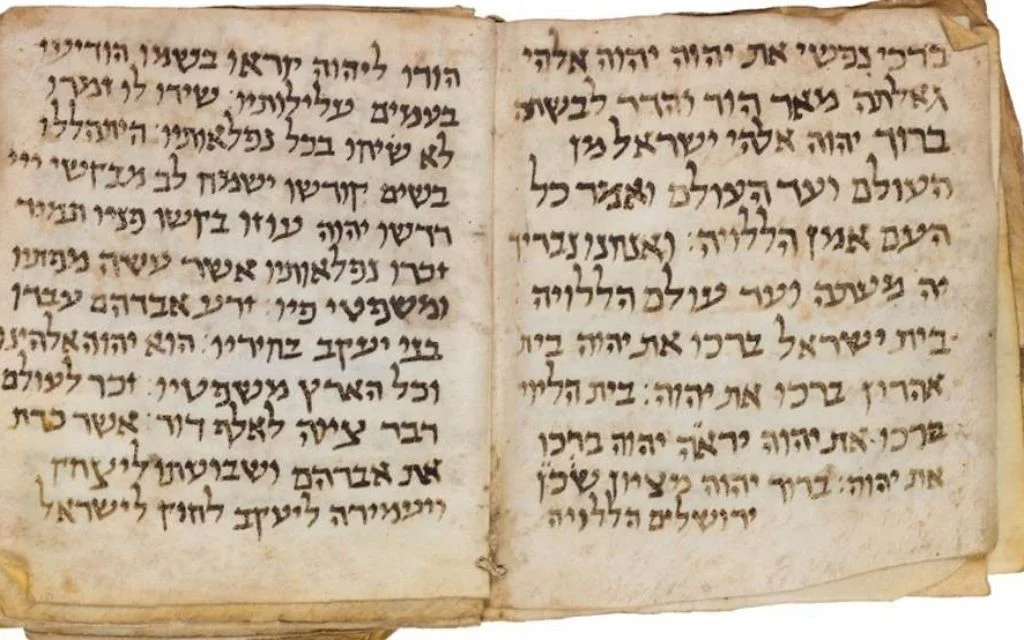 ברכי נפשי את יהוה יהוה אלהי
מאד הוד והדר לבשתה
ברוך יהוה אלהי ישראל מן
העולם ועד העולם ואמר כל
העם אמן הללויה: ואנחנו נבריך
יה מעתה ועד עולם הללויה
בית ישראל ברכו את יהוה בית
אהרון ברכו את יהוה: בית הליוי
ברכו את יהוה יהוה ברכו
את יהוה: ברוך יהוה מציון שכן
ירושלים הללויה
הודו ליהוה קראו בשמו הודיעו
בעמים עלילותיו: שירו לו זמרו
לא שיחו בכל נפלאותיו: היתהללו
בשים קודשו ישמח לב מבקשי ייי
יהוה עוזו בקשו פניו תמיד
זכרו נפלאותיו אשר עשה מפתיו
ומשפטי פיו: זרע אברהם עבדו
בני יעקב בחיריו: הוא יהוה אלהינו
וכל הארץ משפטיו: זכר לעולם
דבר ציוה לאלף דור: אשר כרת
את אברהם ושבועתו ליצחק
ויעמידה ליעקב לחוק לישראל